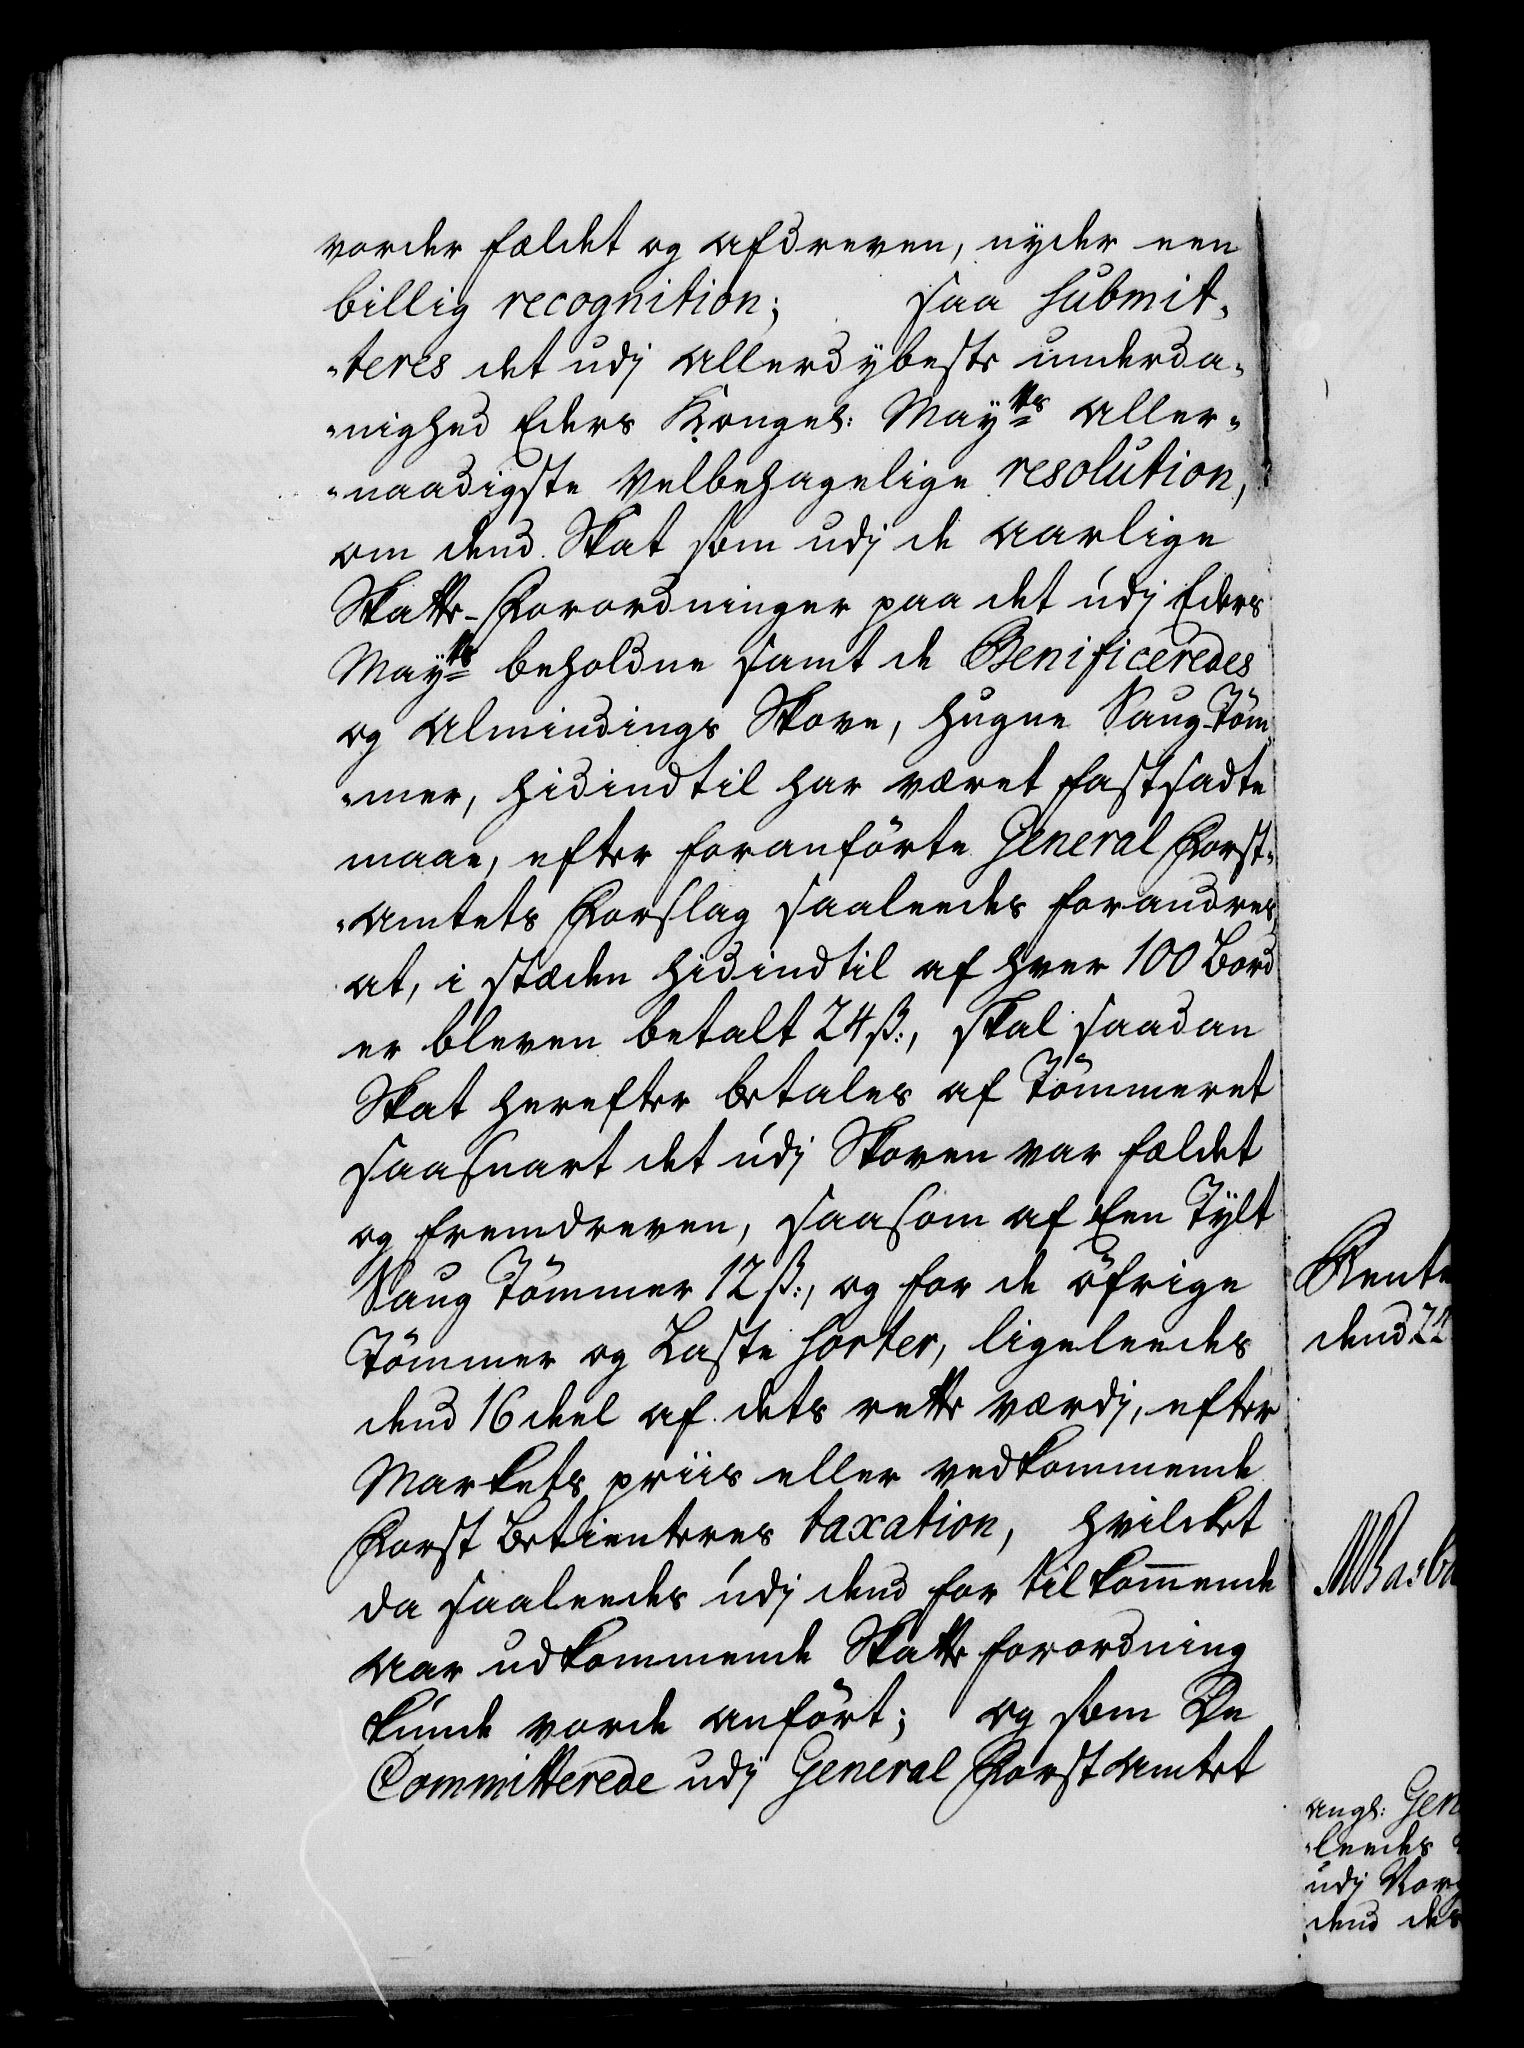 vorder fældet og afdreven, nyder een
billig recognition; saa submit-
-teres det udj allerdybeste underda-
-nighed Eders Kongel: Mayts aller-
-naadigste velbehagelige resolution,
om dend Skat som udj de aarlige
Skatte-Forordninger paa det udj Eders
Mayts beholdne samt de Benificeredes
og Almindings Skove, hugne Saug-Töm-
-mer, hidindtil har været fastsadte
maae, efter foranförte General Forst-
-Amtets Forslag saaleedes forandres,
at, i stæden hidindtil af hver 100 Bord
er bleven betalt 24 ß:, skal saadan
Skat herefter betales af Tömmeret
saasnart det udj Skoven var fældet
og fremdreven, saasom af Een Tylt
Saug Tömmer 12 ß:, og for de öfrige
Tömmer og Laste Sorter, ligeleedes
dend 16 deel af dets rette værdj, efter
Markets priis eller vedkommende
Forst Betienteres taxation, hvilcket
da saaleedes udj dend for tilkommende
Aar udkommende Skatte forordning
kunde vorde anfört; og som De
Committerede udj General Forst Amtet
Rente
dend 22
angl: Gen
-leedes
udj Nor
dend des